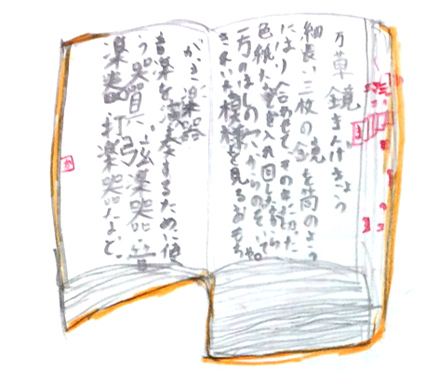 万華鏡まんげきょう
細長い三枚の鏡を筒のよう
にはり合わせて、その中に切った
色紙などを入れ回しながら
一方のはしの穴からのぞいて
きれいな模様を見るおもちゃ。
がっき楽器
音楽を演奏するために使
う器具。弦楽器・管
楽器・打楽器など。